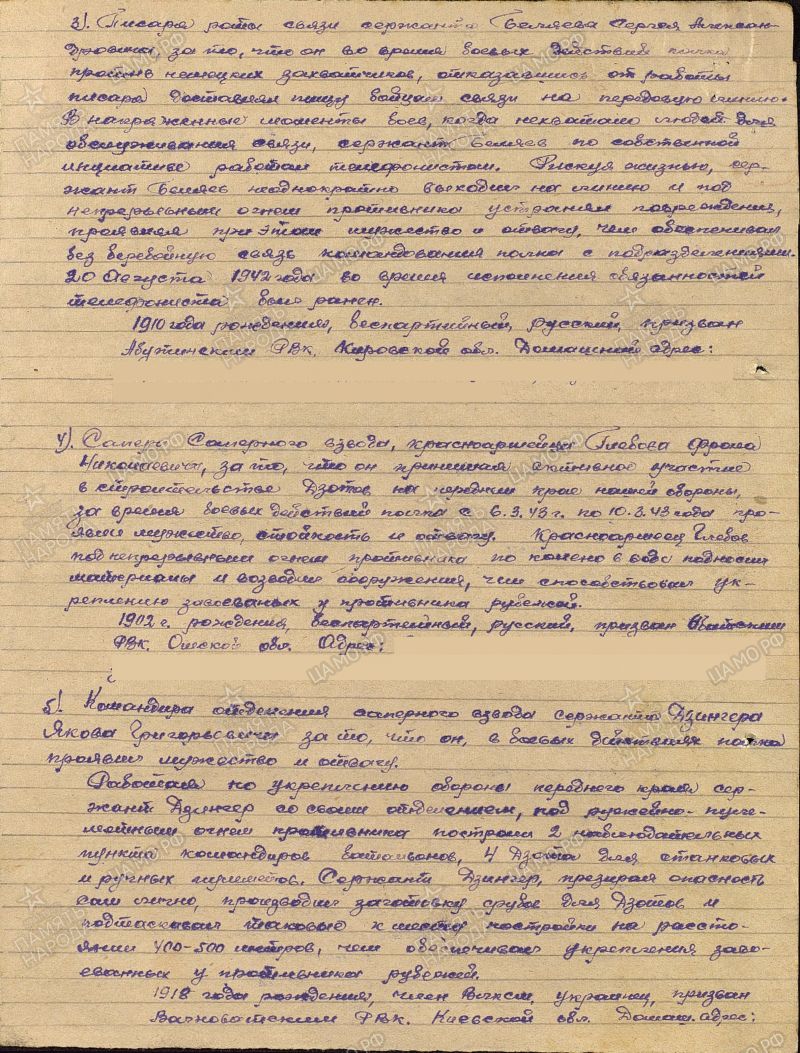 3). Писаря роты связи сержанта Беляева Сергея Алексан-
дровича, за то, что он во время боевых действий полка
против немецких захватчиков, отказавшись от работы
писаря доставлял пищу бойцам связи на передовую линию.
В напряженные моменты боев, когда нехватало людей для
обслуживания связи, сержант Беляев по собственной
инциативе работал телефонистом. Рискуя жизнью, сер-
жант Беляев неоднократно выходил на линию и под
непрерывным огнем противника устранял повреждения,
проявляя при этом мужество и отвагу, чем обеспечивал
без перебойную связь командования полка с подразделениями.
20 Августа 1942 года во время исполнения обязанностей
телефониста был ранен.
1910 года рождения, беспартийный, русский, призван
РВК. Кировской обл. Домашний адрес:
4). Сапера Саперного взвода, красноармейца Глебова Фрола
Николаевича, за то, что он принимал активное участие
в строительстве Дзотов на переднем крае нашей обороны,
за время боевых действий полка с 6.3.43 г. по 10.3.43 года про-
явил мужество, стойкость и отвагу. Красноармеец Глебов
под непрерывным огнем противника по колено в воде подносил
материалы и возводил сооружения, чем способствовал ук-
реплению завоеваных у противника рубежей.
1902 г. рождения, беспартейный, русский, призван
РВК. Омской обл. Адрес:
5). Командира отделения саперного взвода сержанта Дзингера
Якова Григорьевича за то, что он, в боевых действиях полка
проявил мужество и отвагу.
Работая по укреплению обороны переднего края сер-
жант Дзингер со своим отделением, под ружейно-пуле-
метным огнем противника построил 2 наблюдательных
пункта командиров батальонов, 4 Дзота для станковых
и ручных пулеметов. Сержант Дзингер, презирая опасность
сам лично, производил заготовку срубов для Дзотов и
подтаскивал таковые к месту постройки на рассто-
янии 400-500 метров, чем обеспечивал укрепления заво-
еванных у противника рубежей.
1918 года рождения, член Влксм, украинец, призван
РВК. Киевской обл. Домаш. адрес:
ПАМЯТЬ НАРОДА
ЦАМО.РФ